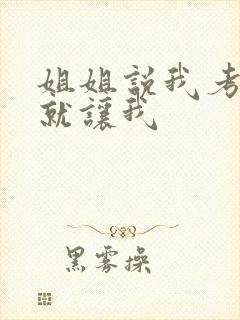 姐姐説我考
就讓我
黑雾操